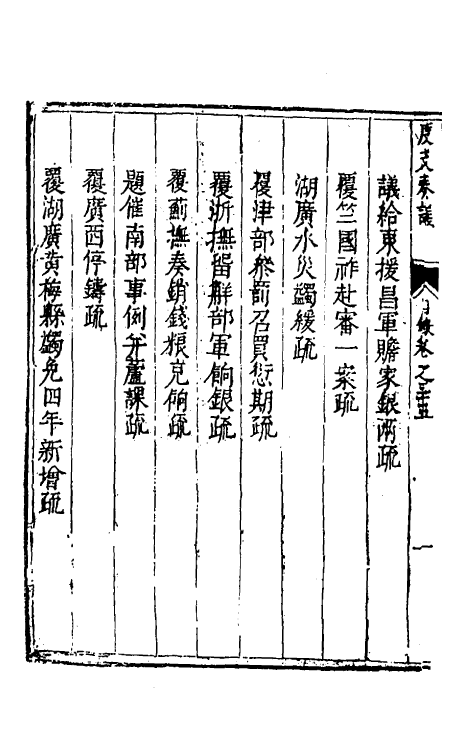 度支奏議 目錄卷之三十五 一
議給東援昌軍贍家銀兩疏
覆竺國祚赴審一案疏
湖廣水災蠲緩疏
覆津部叅罰召買愆期疏
覆浙撫留觧部軍餉銀疏
覆薊撫奏銷錢粮克餉疏
題催南部事例并蘆課疏
覆廣西停鑄疏
覆湖廣黃梅縣蠲免四年新增疏